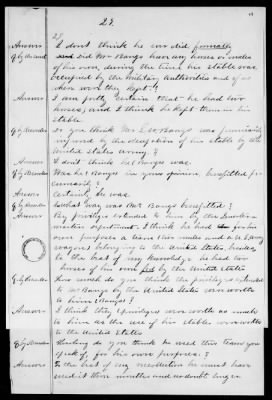 27.
Answer I don't think he ever did formally
Q by the court Did Mr Bangs have any horses or mules
of his own, during the time his stable was
occupied by the military authorities and if so
where were they kept?
Answer I am pretty certain that he had two
horses; and I think he kept them in his
stable
Do you think Mr E W Bangs was
injured by the occupation of his stable by the
United States Army?
Answer I don't think he was
Was Mr Bangs in your opinion benefitted
Answer Certainly he was
what way was Mr Bangs benefitted?
Answer By privileges extended to him by the Quarter-
master department. I think he had
purposes a team two mules and a U.S. Army
wagon belonging to the United States, besides
to the best of my knowledge he had two
horses of his own fed by the United States
How much do you think the privileges extended
to Mr Bangs by the United States were worth
to him (Bangs)?
Answer I think the privileges were worth as much
to him as the use of his stables were worth
to the United States
How long do you think he used this team you
speak of, for his own purposes?
Answer To the best of my recollection he must have
used it three months and no doubt longer